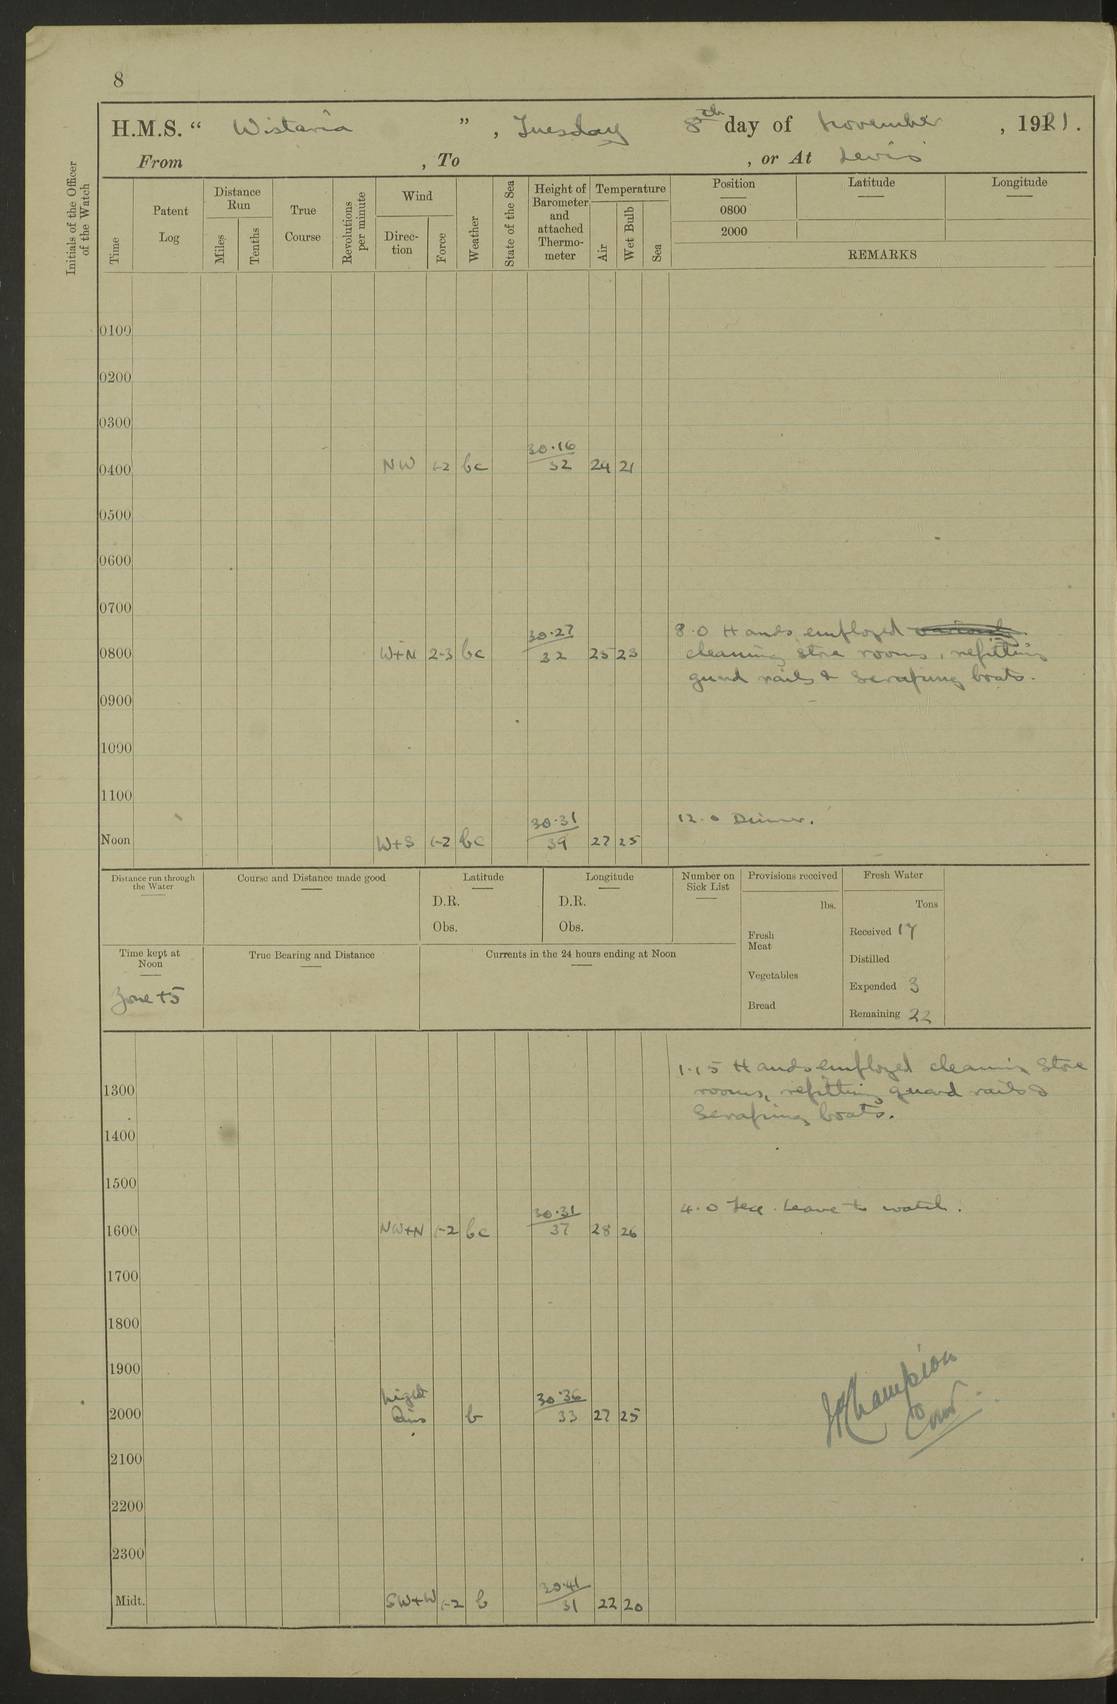 8
H.M.S. “ Wistaria ” , Tuesday 8th day of November , 1921.
From , To , or At Levis
Initials of the Officer of the Watch
Time
Patent Log
Distance Run
Miles
Tenths
True Course
Revolutions per minute
Wind
Direc-tion
Force
Weather
State of the Sea
Height of Barometer and attached Thermo-meter
Temperature
Air
Wet Bulb
Sea
Position Latitude Longitude
0800
2000
REMARKS
0100
0200
0300
30.16
0400 NW 1-2 bc 32 24 21
0500
0600
0700
30.27 8.0 Hands employed
0800 W+N 2-3 bc 32 25 23 cleaning store rooms, refitting
guard rails & scraping boats.
0900
1000
1100
30.31 12.0 Dinner.
Noon W+S 1-2 bc 39 27 25
Distance run through the Water
Course and Distance made good
Latitude
D.R.
Obs.
Longitude
D.R.
Obs.
Number on Sick List
Provisions received
lbs.
Fresh Meat
Vegetables
Bread
Fresh Water
Tons
Received 17
Distilled
Expended 3
Remaining 22
Time kept at Noon
Zone +5
True Bearing and Distance
Currents in the 24 hours ending at Noon
1.15 Hands employed cleaning store
1300 rooms, refitting guard rails &
scraping boats.
1400
1500
30.31 4.0 Leave to watch.
1600 NW+N 1-2 bc 37 28 26
1700
1800
1900
Light 30.36
2000 Airs b 33 27 25
JPChampion
Comr
2100
2200
2300
30.41
Midt. SW+W 1-2 b 31 22 20